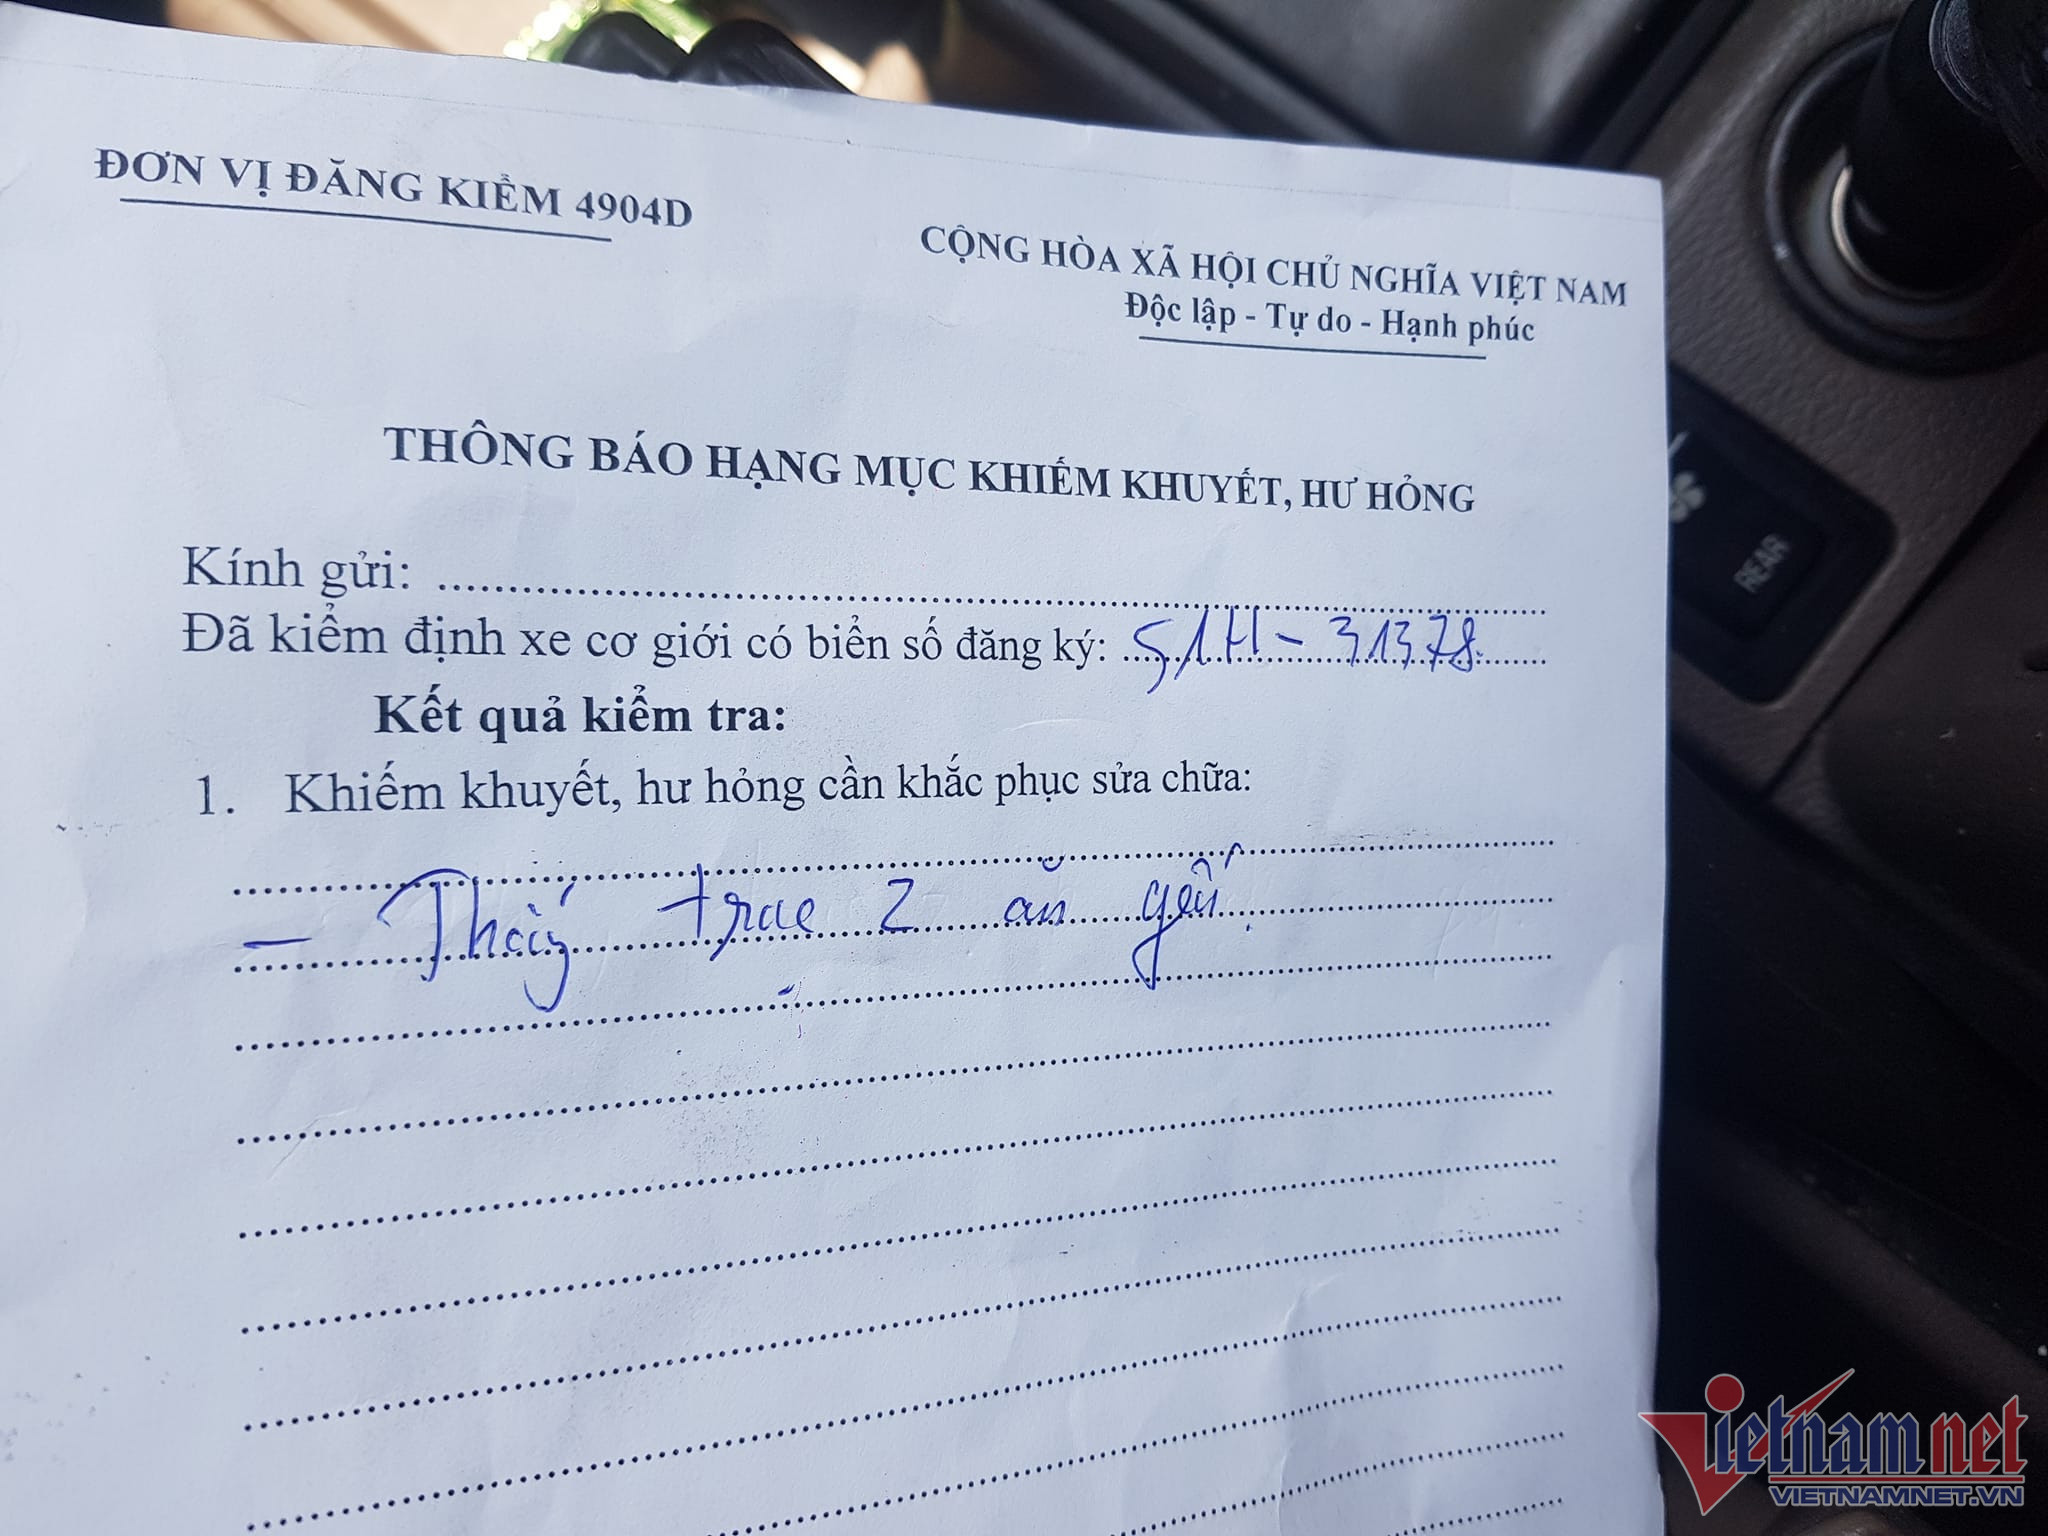 ĐƠN VỊ ĐĂNG KIỂM 4904D
CỘNG HÒA XÃ HỘI CHỦ NGHĨA VIỆT NAM
Độc lập - Tự do - Hạnh phúc
THÔNG BÁO HẠNG MỤC KHIẾM KHUYẾT, HƯ HỎNG
Kính gửi:
Đã kiểm định xe cơ giới có biển số đăng ký: 51H - 31378.
Kết quả kiểm tra:
1. Khiếm khuyết, hư hỏng cần khắc phục sửa chữa:
- trục 2 ăn yếu
REAR
Vietnamnet
VIETNAMNET.VN